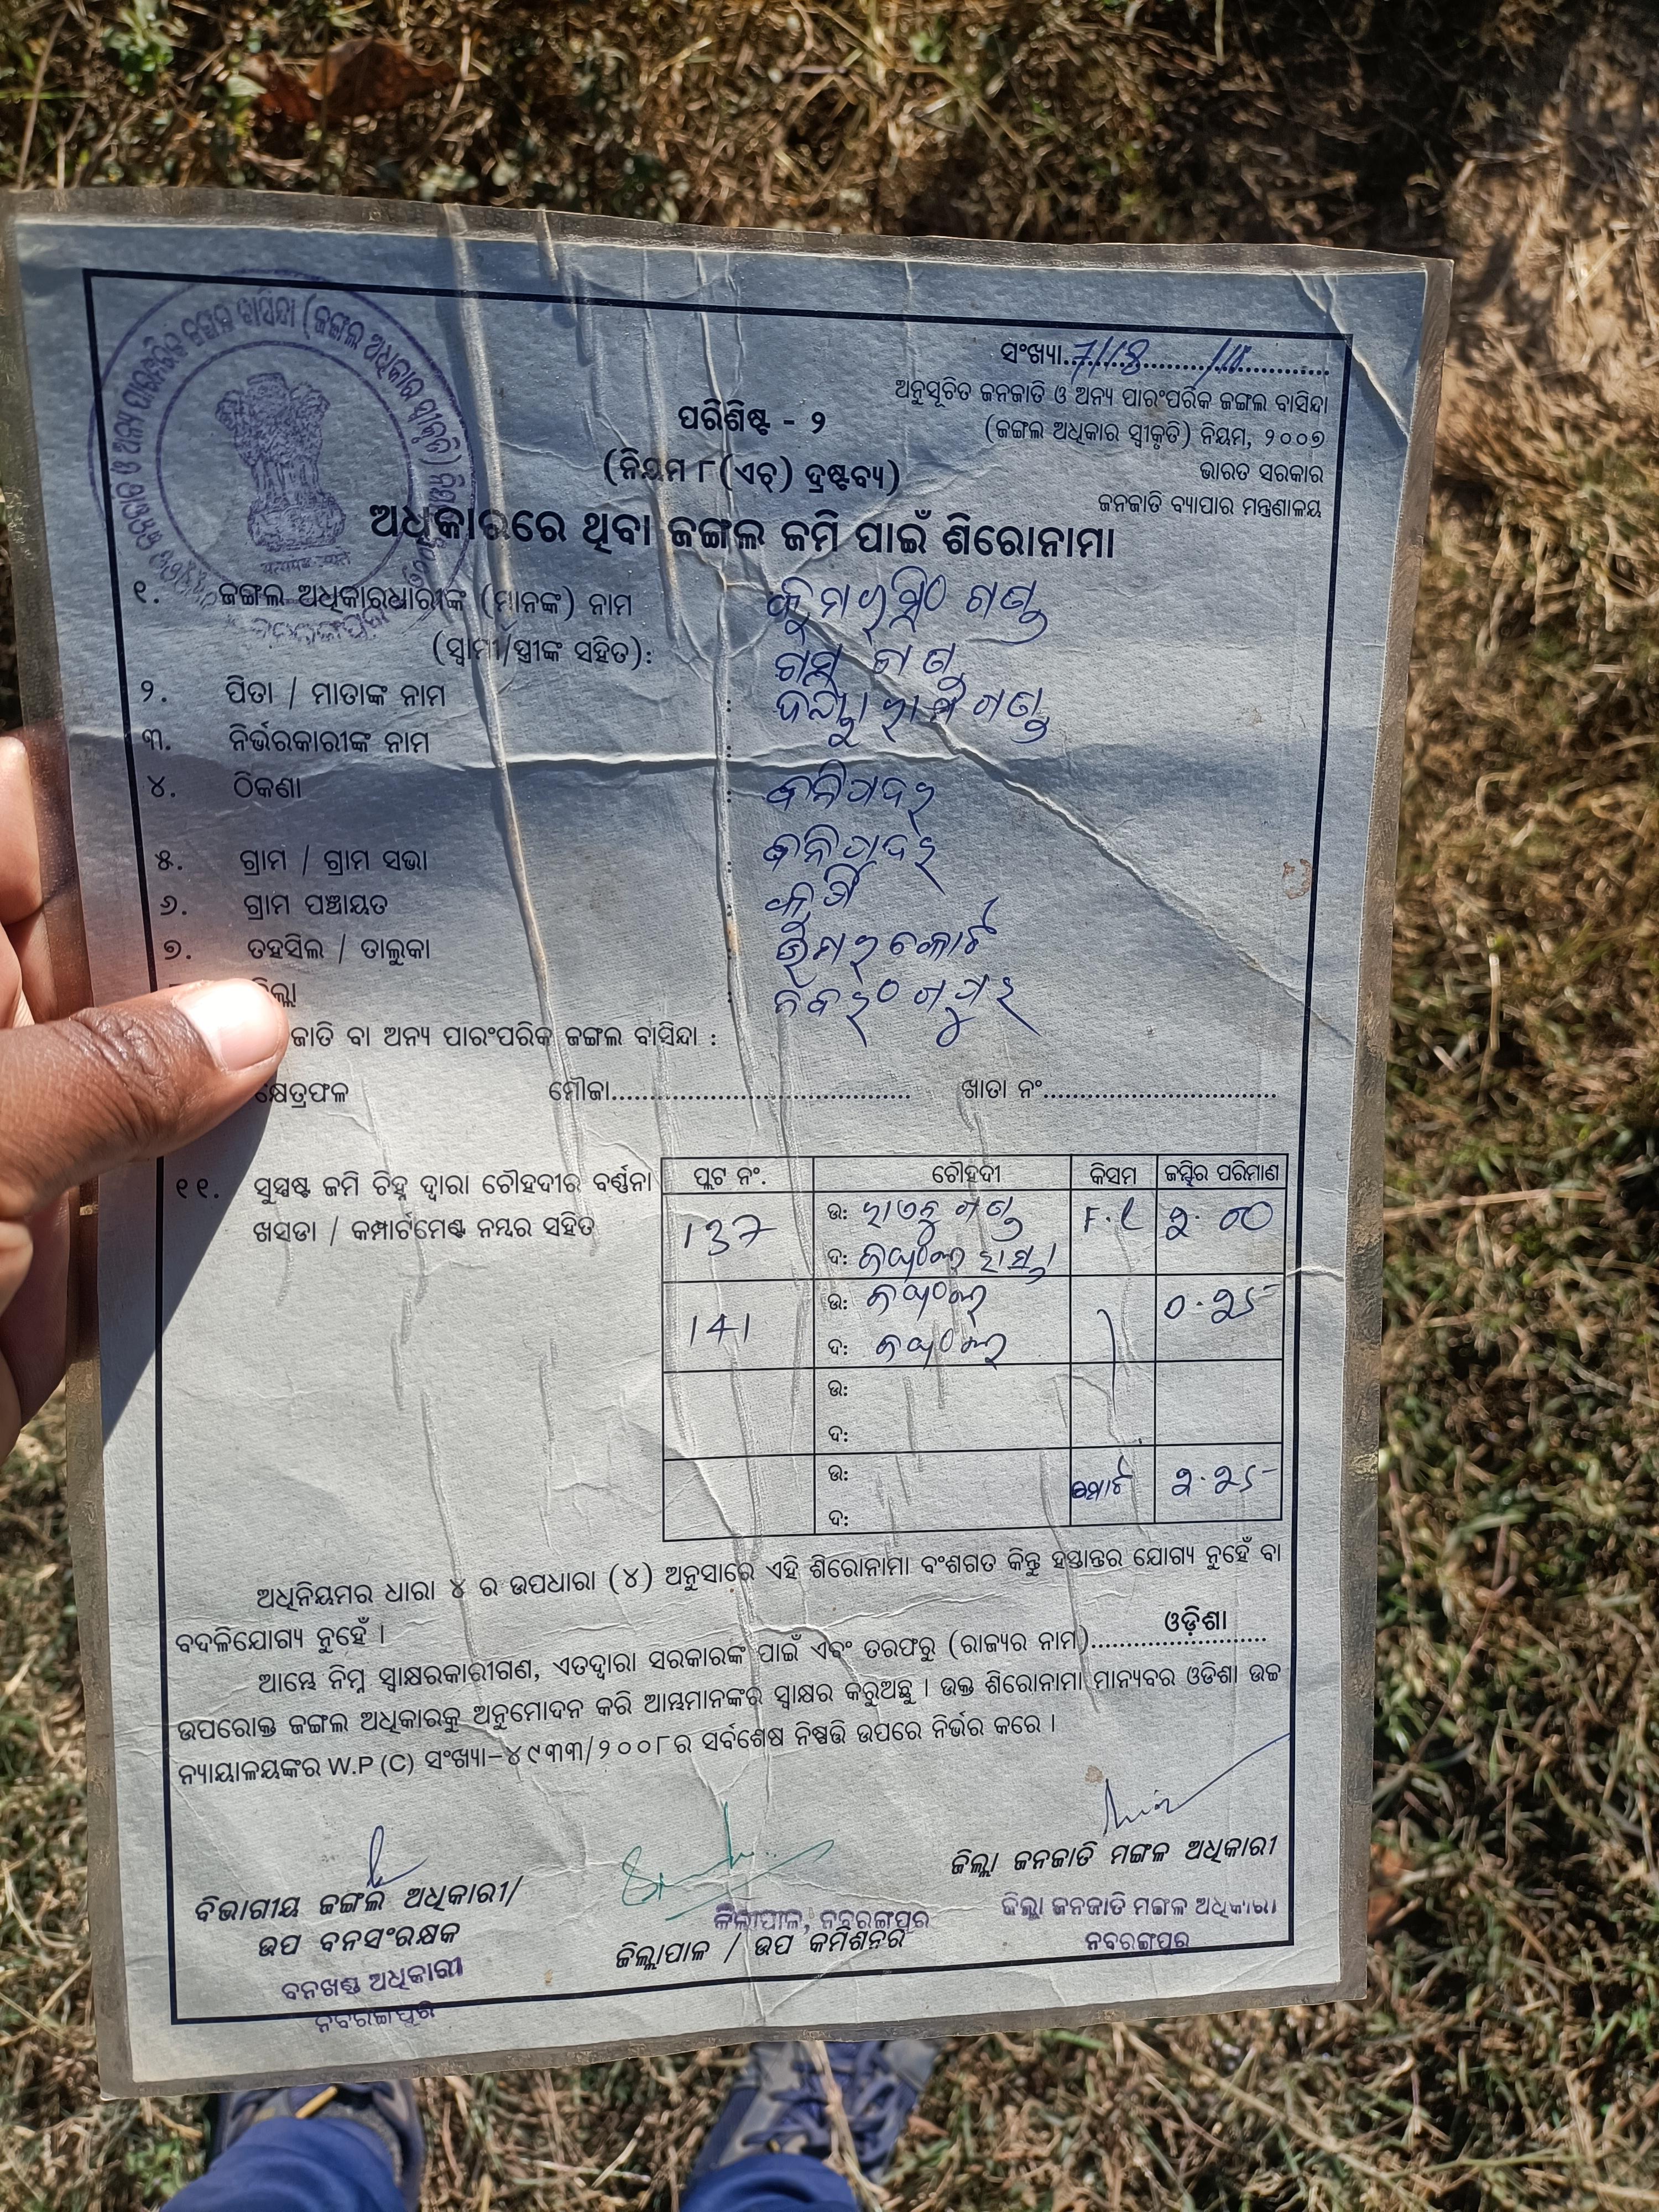 ସଂଖ୍ୟା 7118
ଅନୁସୂଚିତ ଜନଜାତି ଓ ଅନ୍ୟ ପାରଂପରିକ ଜଙ୍ଗଲ ବାସିନ୍ଦା
(ଜଙ୍ଗଲ ଅଧିକାର ସ୍ୱୀକୃତି) ନିୟମ, ୨୦୦୭
ଭାରତ ସରକାର
ଜନଜାତି ବ୍ୟାପାର ମନ୍ତ୍ରଣାଳୟ
ପରିଶିଷ୍ଟ - ୨
(ନିୟମ ୮(ଏଚ୍) ଦ୍ରଷ୍ଟବ୍ୟ)
ଅଧିକାରରେ ଥିବା ଜଙ୍ଗଲ ଜମି ପାଇଁ ଶିରୋନାମା
୧. ଜଙ୍ଗଲ ଅଧିକାରଧାରୀଙ୍କ (ମାନଙ୍କ) ନାମ ଗଣ୍ଡ
(ସ୍ୱାମୀ/ସ୍ତ୍ରୀଙ୍କ ସହିତ):
୨. ପିତା / ମାତାଙ୍କ ନାମ : ଗଣ୍ଡ
୩. ନିର୍ଭରକାରୀଙ୍କ ନାମ :
୪. ଠିକଣା :
୫. ଗ୍ରାମ / ଗ୍ରାମ ସଭା :
୬. ଗ୍ରାମ ପଞ୍ଚାୟତ :
୭. ତହସିଲ / ତାଲୁକା : ଉମରକୋଟ
ଜିଲ୍ଲା : ନବରଂଗପୁର
ଜାତି ବା ଅନ୍ୟ ପାରଂପରିକ ଜଙ୍ଗଲ ବାସିନ୍ଦା :
କ୍ଷେତ୍ରଫଳ ମୌଜା........................................ ଖାତା ନଂ................................
୧୧. ସୁସ୍ପଷ୍ଟ ଜମି ଚିହ୍ନ ଦ୍ୱାରା ଚୌହଦୀର ବର୍ଣ୍ଣନା
ଖସଡା / କମ୍ପାର୍ଟମେଣ୍ଟ ନମ୍ବର ସହିତ
ପ୍ଲଟ ନଂ. ଚୌହଦୀ କିସମ ଜମିର ପରିମାଣ
137 ଉ: ଗଣ୍ଡ F.L ୨.୦୦
ଦ: ରାସ୍ତା
141 ଉ: ଜଙ୍ଗଲ ୦.୨୫
ଦ: ଜଙ୍ଗଲ
ଉ:
ଦ:
ଉ: ମୋଟ ୨.୨୫
ଦ:
ଅଧିନିୟମର ଧାରା ୪ ର ଉପଧାରା (୪) ଅନୁସାରେ ଏହି ଶିରୋନାମା ବଂଶଗତ କିନ୍ତୁ ହସ୍ତାନ୍ତର ଯୋଗ୍ୟ ନୁହେଁ ବା
ବଦଳିଯୋଗ୍ୟ ନୁହେଁ ।
ଆମ୍ଭେ ନିମ୍ନ ସ୍ୱାକ୍ଷରକାରୀଗଣ, ଏତଦ୍ୱାରା ସରକାରଙ୍କ ପାଇଁ ଏବଂ ତରଫରୁ (ରାଜ୍ୟର ନାମ)..........ଓଡ଼ିଶା..........
ଉପରୋକ୍ତ ଜଙ୍ଗଲ ଅଧିକାରକୁ ଅନୁମୋଦନ କରି ଆମ୍ଭମାନଙ୍କର ସ୍ୱାକ୍ଷର କରୁଅଛୁ । ଉକ୍ତ ଶିରୋନାମା ମାନ୍ୟବର ଓଡିଶା ଉଚ୍ଚ
ନ୍ୟାୟାଳୟଙ୍କର W.P (C) ସଂଖ୍ୟା-୪୯୩୩/୨୦୦୮ର ସର୍ବଶେଷ ନିଷ୍ପତ୍ତି ଉପରେ ନିର୍ଭର କରେ ।
ବିଭାଗୀୟ ଜଙ୍ଗଲ ଅଧିକାରୀ/
ଉପ ବନସଂରକ୍ଷକ
ବନଖଣ୍ଡ ଅଧିକାରୀ
ନବରଙ୍ଗପୁର
ଜିଲ୍ଲାପାଳ, ନବରଙ୍ଗପୁର
ଜିଲ୍ଲାପାଳ / ଉପ କମିଶନର
ଜିଲ୍ଲା ଜନଜାତି ମଙ୍ଗଳ ଅଧିକାରୀ
ଜିଲ୍ଲା ଜନଜାତି ମଙ୍ଗଳ ଅଧିକାରୀ
ନବରଙ୍ଗପୁର